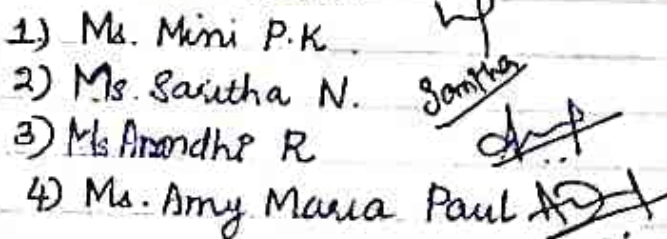 1) Ms. Mini P.K.
2) Ms. Saritha N. Saritha
3) Ms Anandhi R
4) Ms. Amy Maria Paul